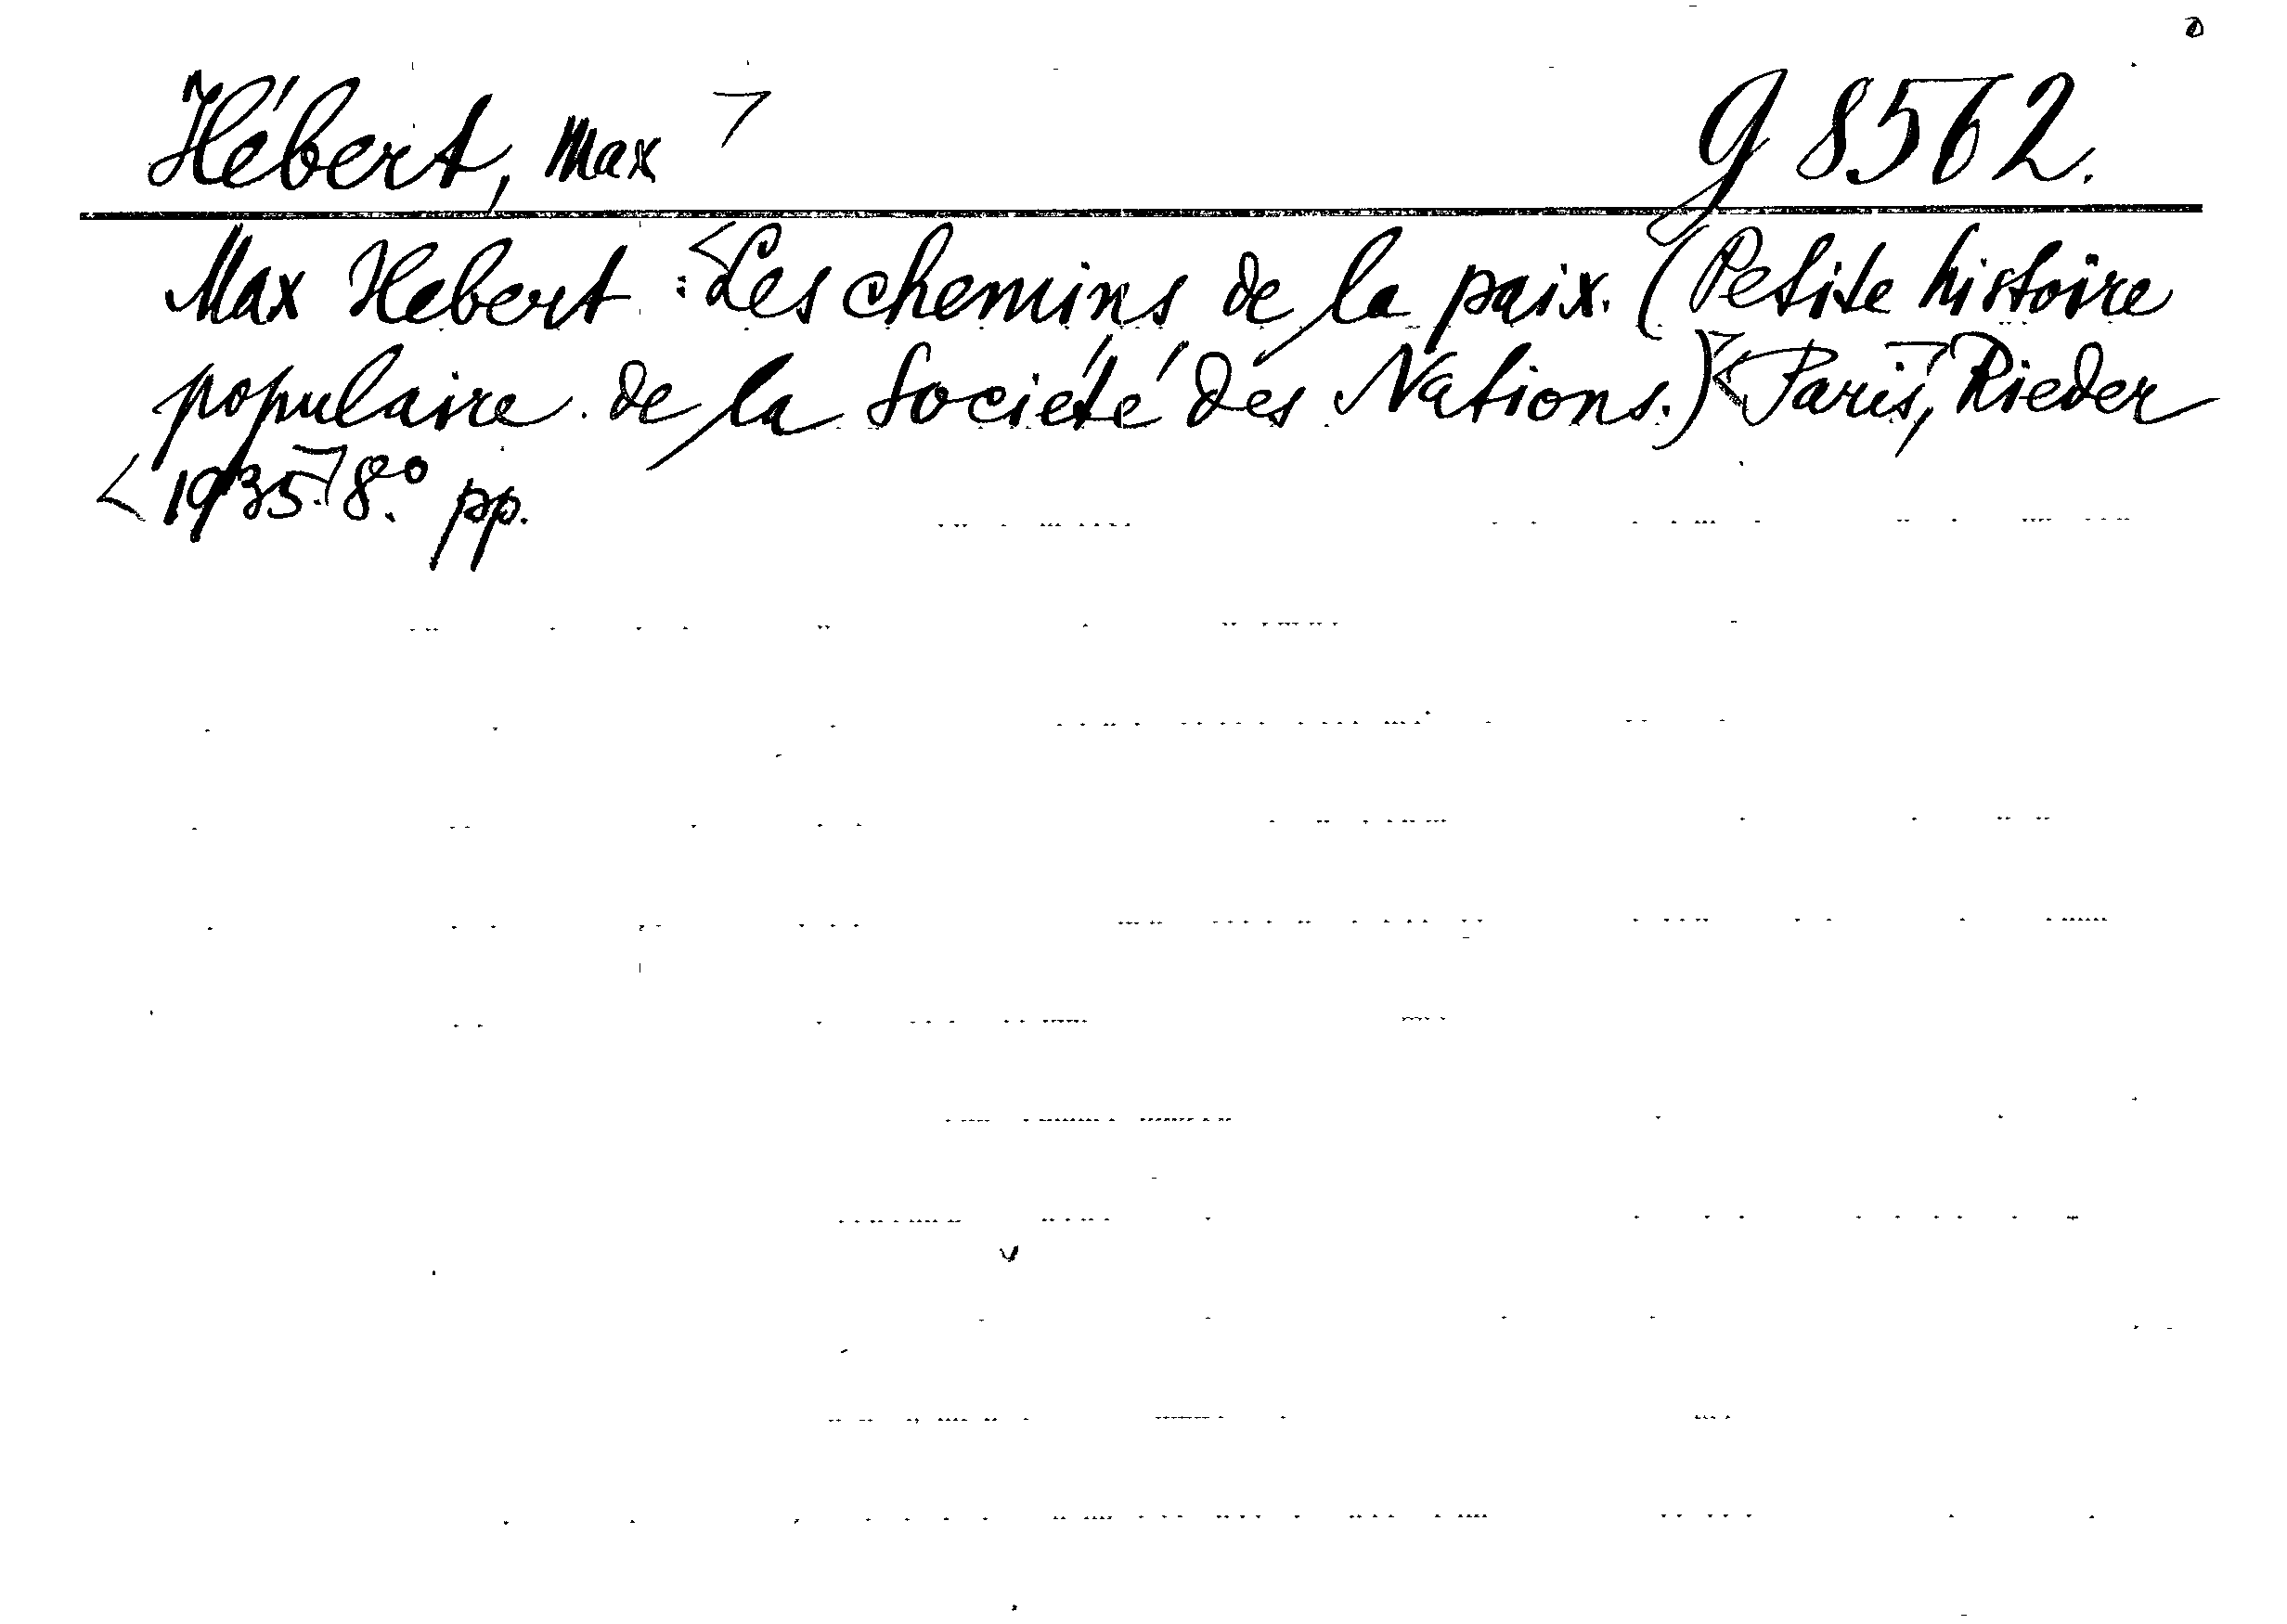 Hébert, Max ¬ g 8562.
Max Hebert : <Les chemins de la paix. (Petite histoire
populaire de la Société des Nations.)¬ <Paris,¬ Rieder
<1935.¬ 8.° pp.